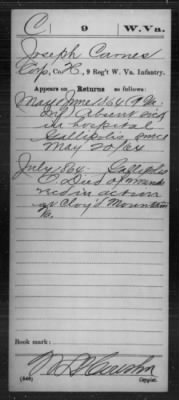 C | 9 | W. Va.
Joseph Carnes
Corp, Co. H, 9 Reg't W. Va. Infantry.
Appears on Returns as follows:
May & June 1864
Absent sick
in hospital
Gallipolis since
May 20/64
July 1864. Gallipolis
O. Died of wounds
rec'd in action
at Cloy'd Mountain
Va.
Book mark:
(646) Copyist.